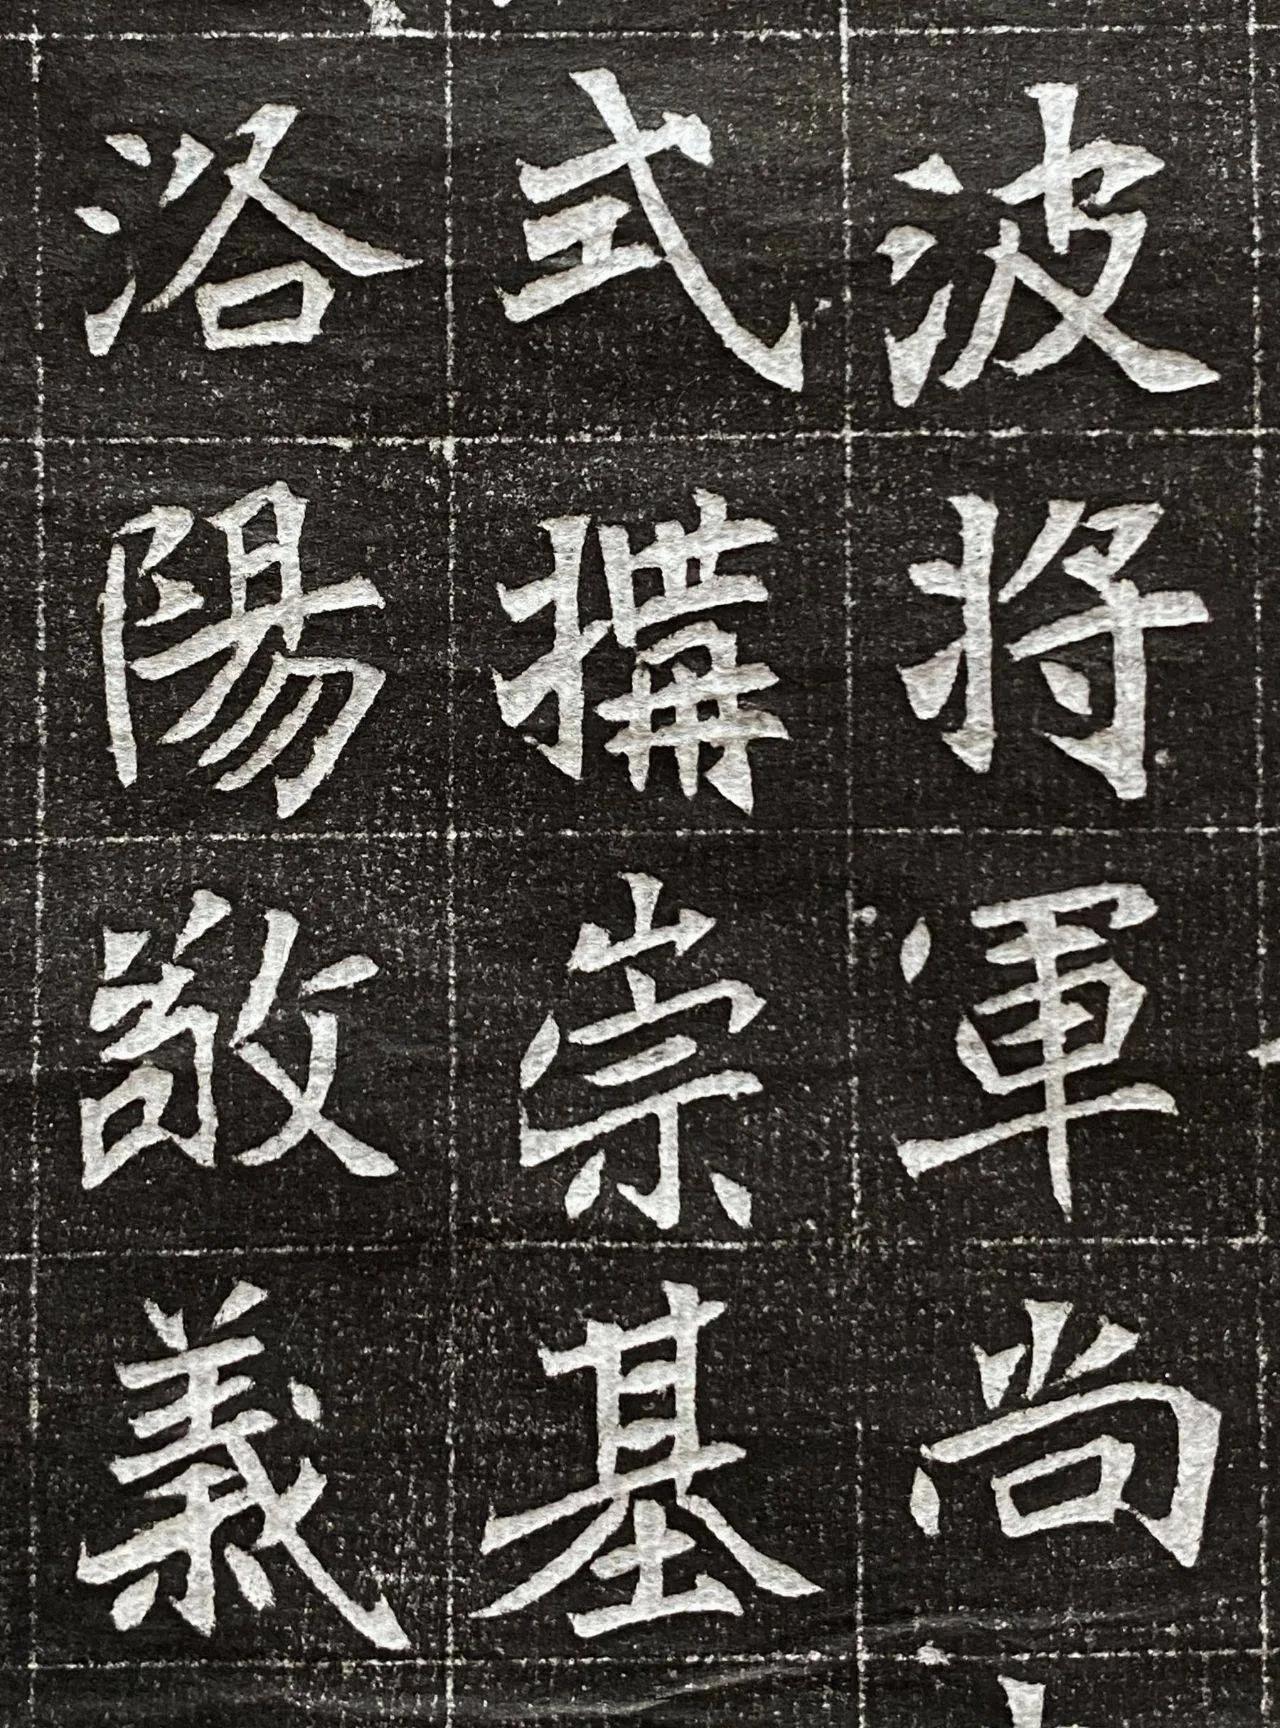 波將軍尚
式搆崇基
浴陽敬義